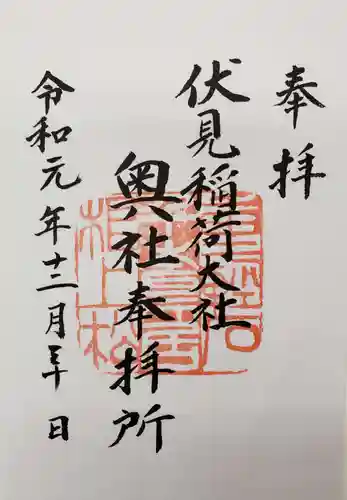 奉拝
伏見稲荷大社
奥社奉拝所
令和元年十二月 日